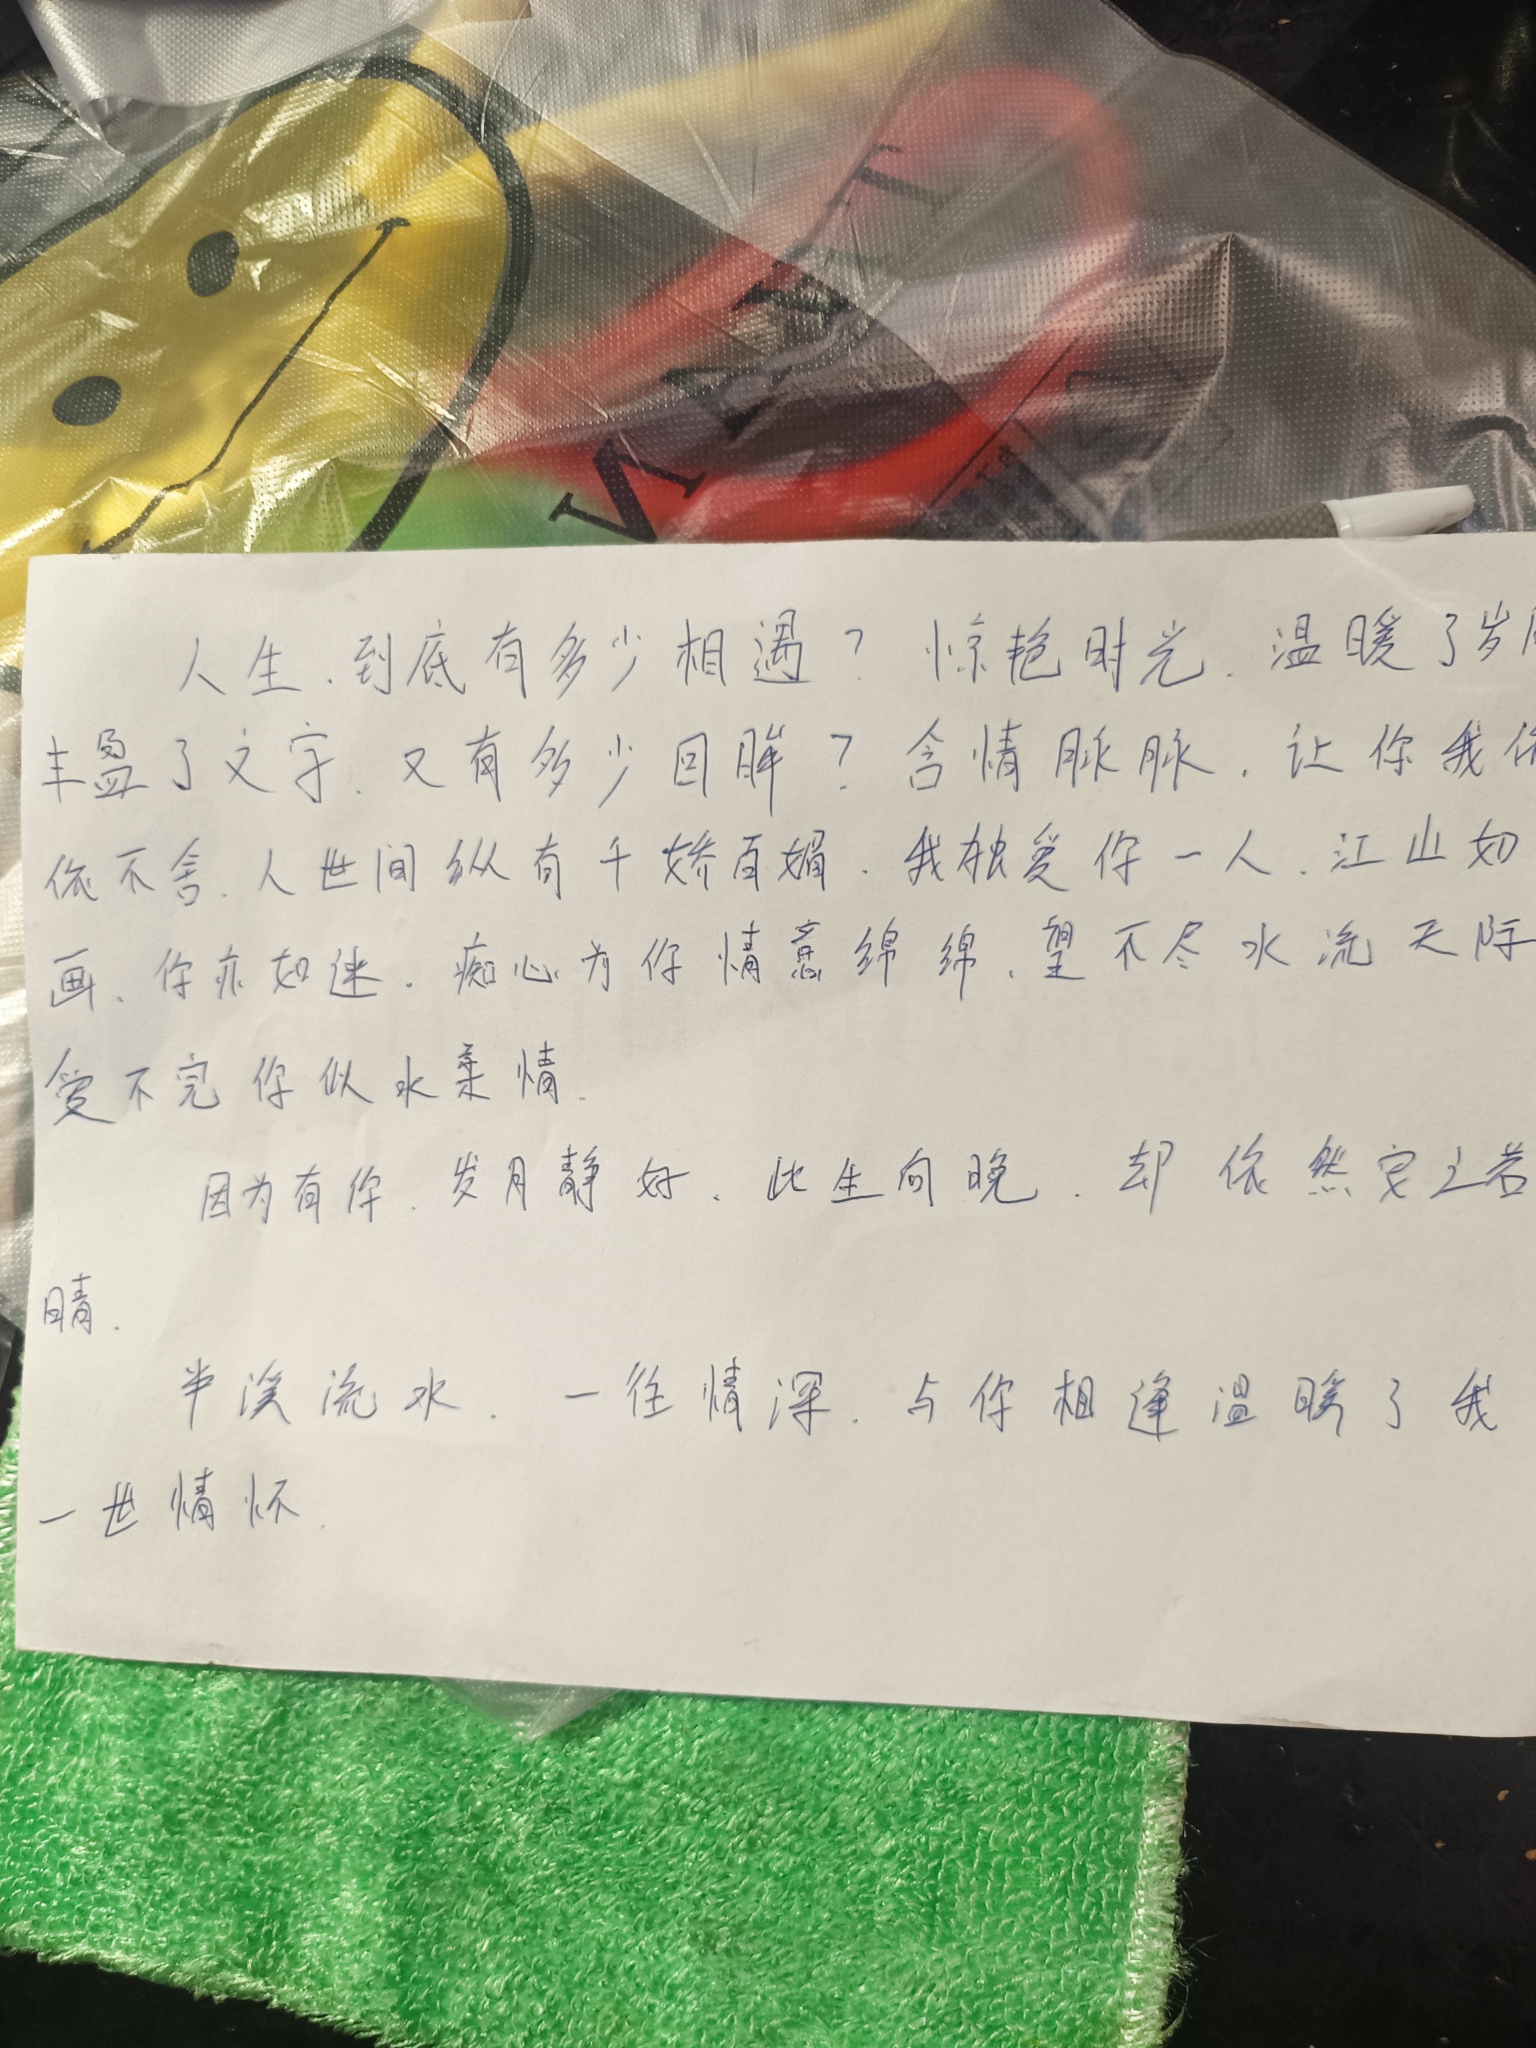 人生.到底有多少相遇?惊艳时光.温暖了岁月
丰盈了文字.又有多少回眸?含情脉脉.让你我依
依不舍.人世间纵有千娇百媚.我独爱你一人.江山如
画.你亦如迷.痴心为你情意绵绵.望不尽水流天际
爱不完你似水柔情.
因为有你.岁月静好.此生向晚.却依然安之若
晴.
半溪流水.一往情深.与你相逢温暖了我
一世情怀.